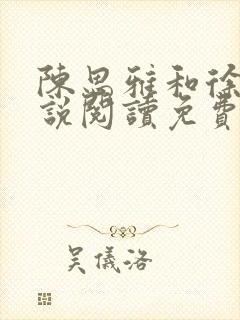 陳思雅和徐
說閱讀免費
吳儀洛